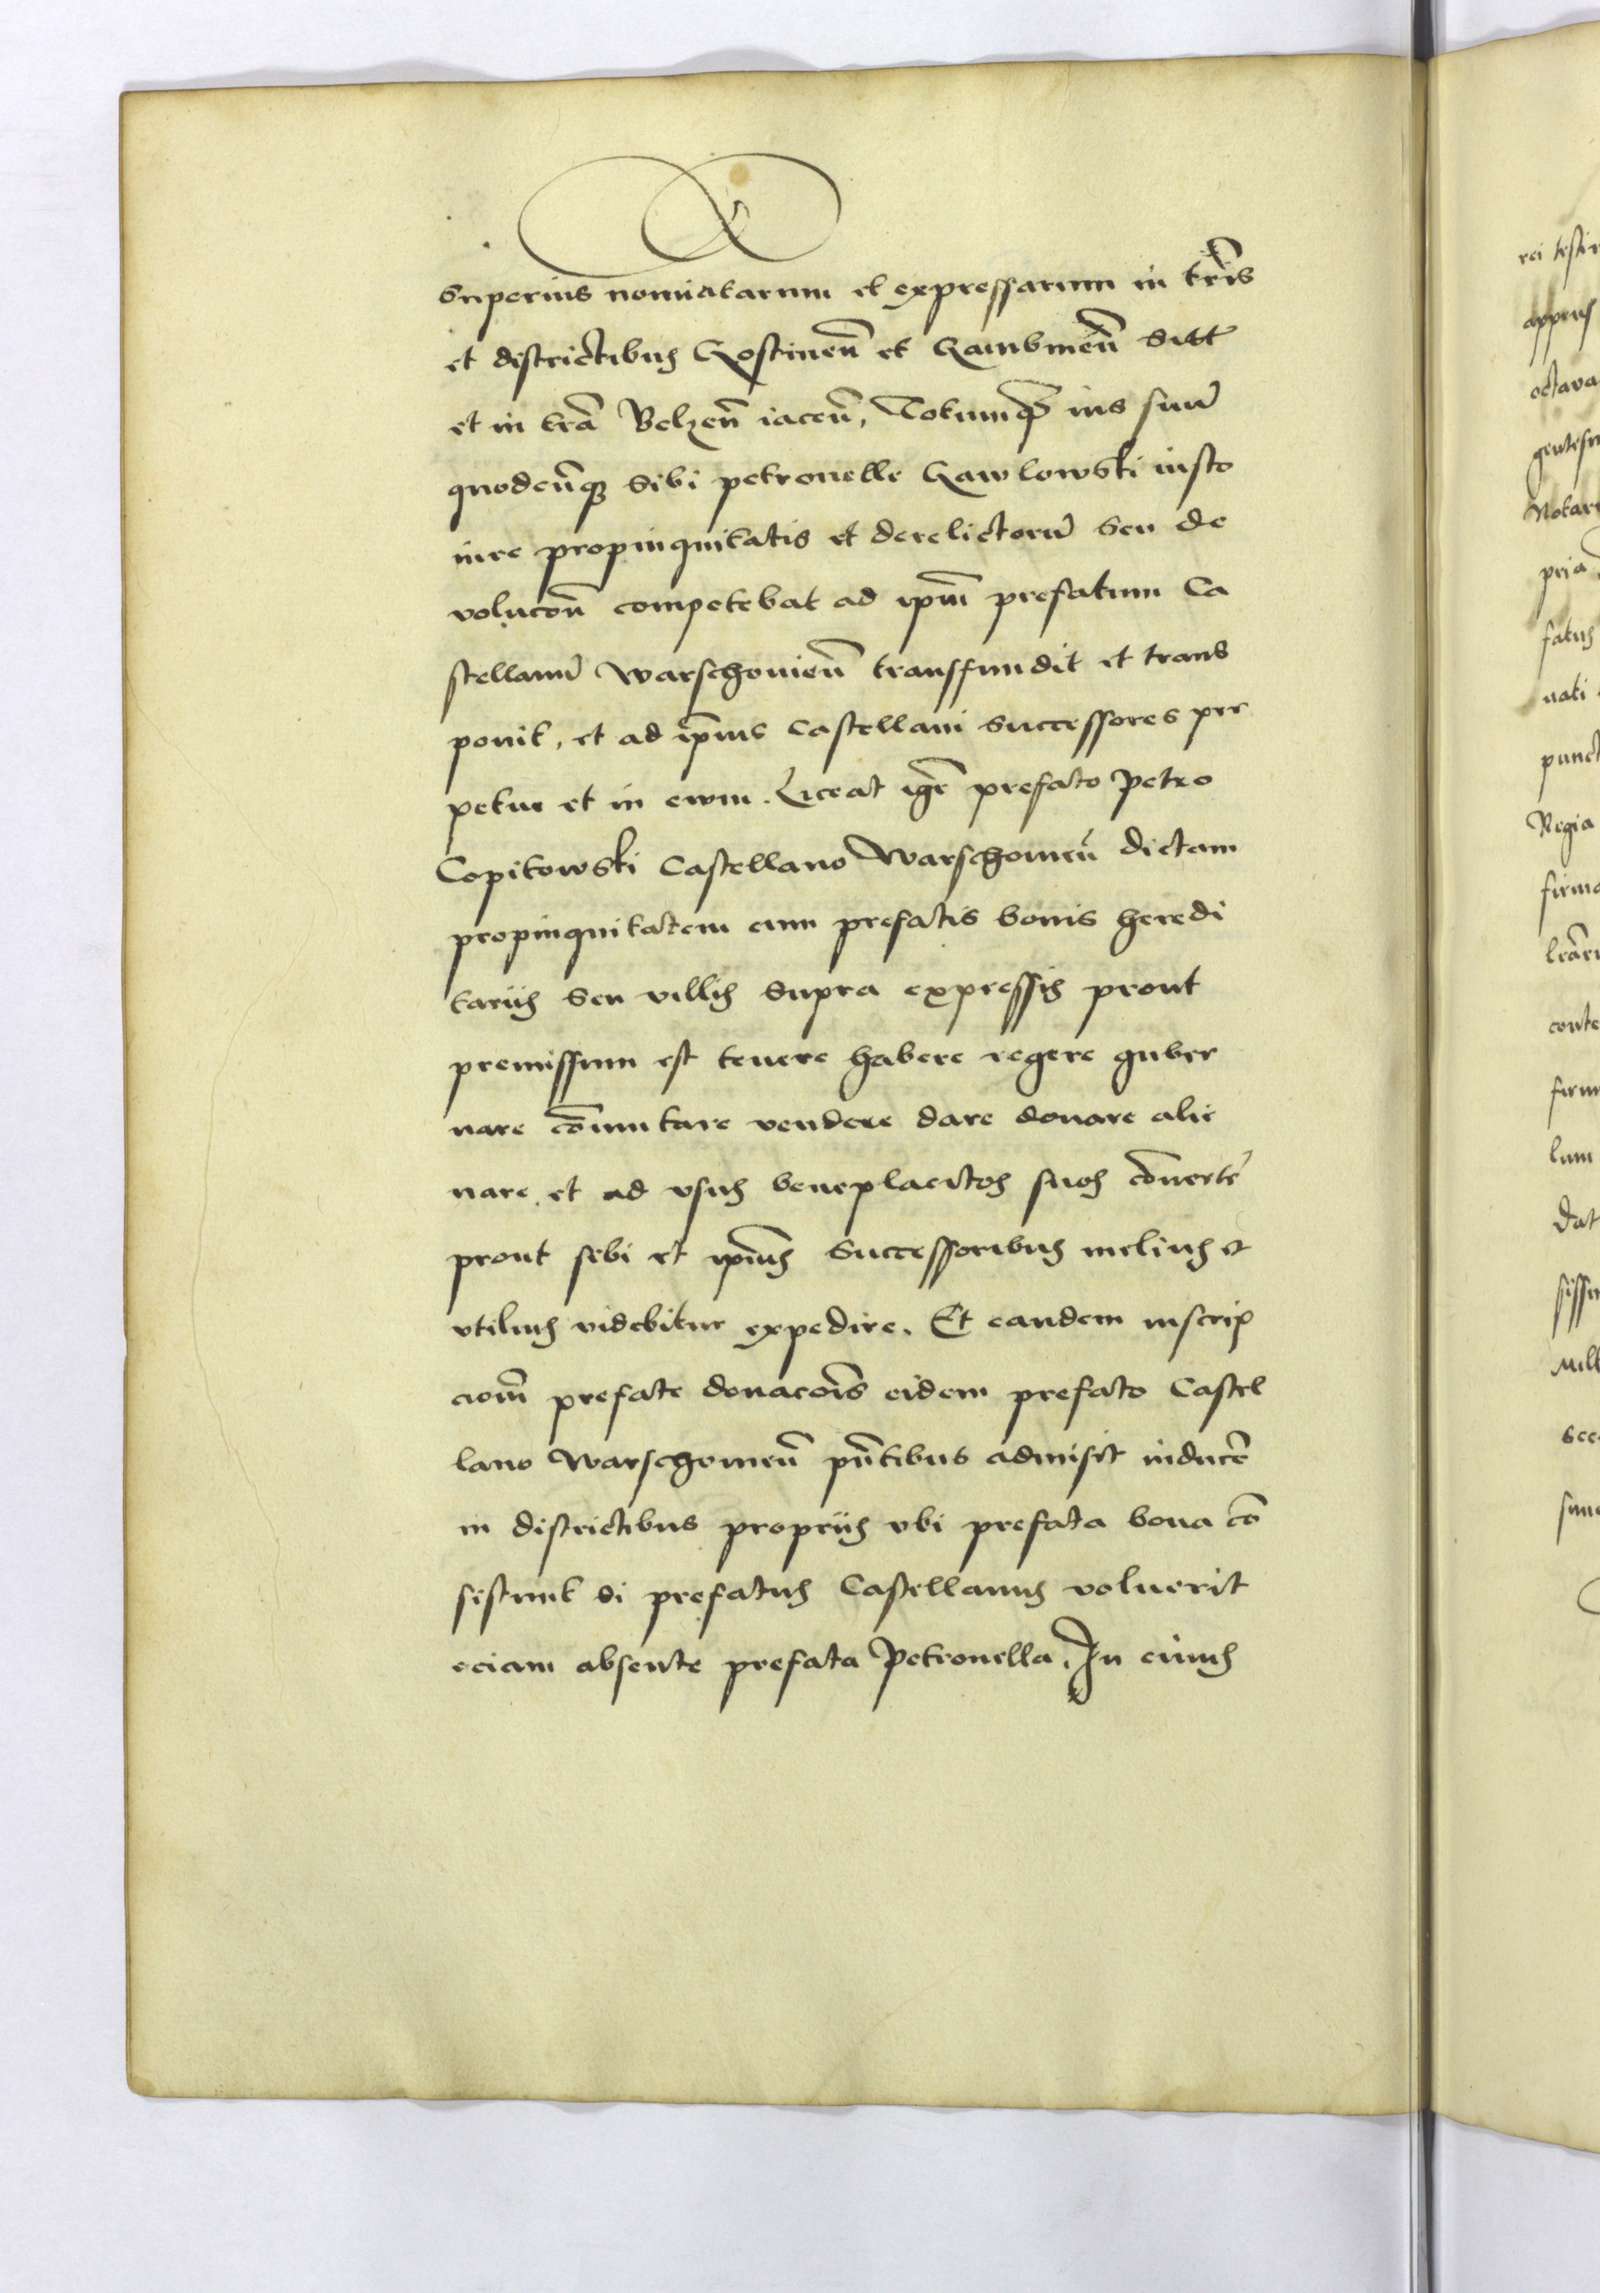 superius nomiatarum et expressarum in tr̄is
et districtibus Gostinen̄ et Gambinen̄ sitt̄
et in tr̄a Belzen̄ iacen̄, Totumq̄ꝫ ius suū
quodcūqꝫ sibi petronelle Gawlowski iusto
iure propinquitatis et derelictorū seu de
volucōn̄ competebat ad ip̄m prefatum Ca
stellanū Warschouien̄ transfundit et trans
ponit, et ad ip̄ius Castellani successores per
petue et in ewm. Liceat igr̄ prefato Petro
Copitowski Castellano Warschouien̄ dictam
propinquitatem cum prefatis bonis heredi
tariis seu villis supra expressis prout
premissum est tenere habere regere guber
nare com̄utare vendere dare donare alie
nare, et ad vsus beneplacitos suos cōuerte᷑
prout sibi et ip̄ius successoribus melius et
vtilius videbitur expedire. Et eandem inscrip
cionem̄ prefate donacōis eidem prefato Castel
lano Warschouien̄ pn̄tibus admisit inducē
in districtibus propriis vbi prefata bona cō
sistunt si prefatus Castellanus voluerit
eciam absente prefata Petronella. In cuius
rei
octava
Notar
Regia
firma
conte
lum
Dat